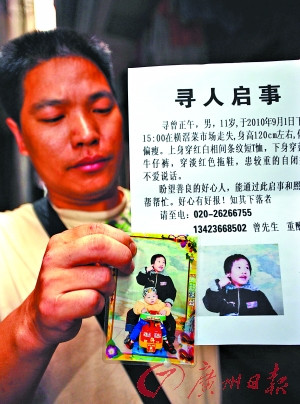 寻人启事
寻曾正午,男,11岁,于2010年9月1日下
15:00在横滘菜市场走失,身高120cm左右,
偏瘦。上身穿红白相间条纹短T恤,下身穿
牛仔裤,穿淡红色拖鞋,患较重的自闭
不爱说话。
盼望善良的好心人,能通过此启事和照
帮帮忙。好心有好报!知其下落者
请至电:020-26266755
13423668502 曾先生 重
广州日报